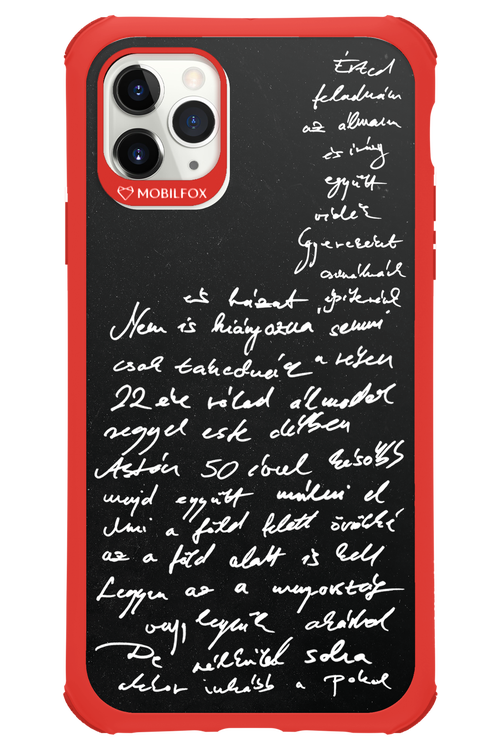 MOBILFOX
Érted
feladnám
az álmaim
és így
együtt
vidék
Gyerekeket
csinálnánk
és házat építenénk
Nem is hiányozna semmi
csak tekednék a
22 éve rólad álmodok
reggel este délben
Aztán 50 évvel később
majd együtt múlni el
Ami a föld felett örökké
az a föld alatt is kell
Legyen az a mennyország
vagy legyünk akárhol
De nélküled soha
akkor inkább a pokol